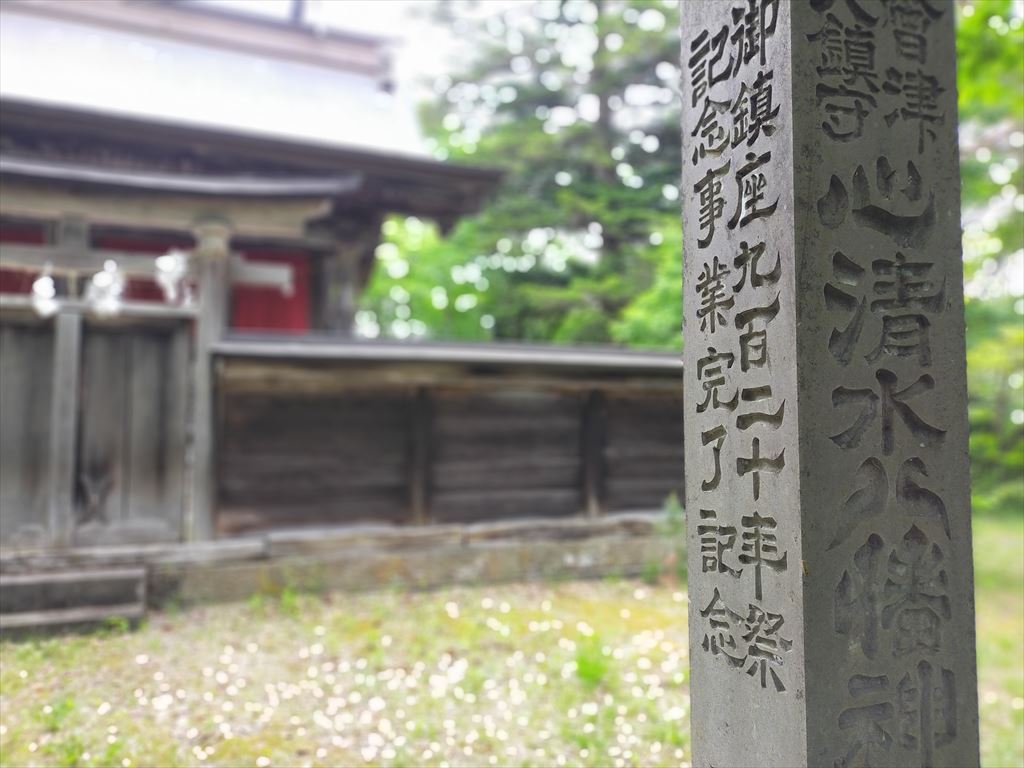 會津
八鎮守
心清水八幡神
御鎮座九百二十年祭
記念事業完了記念